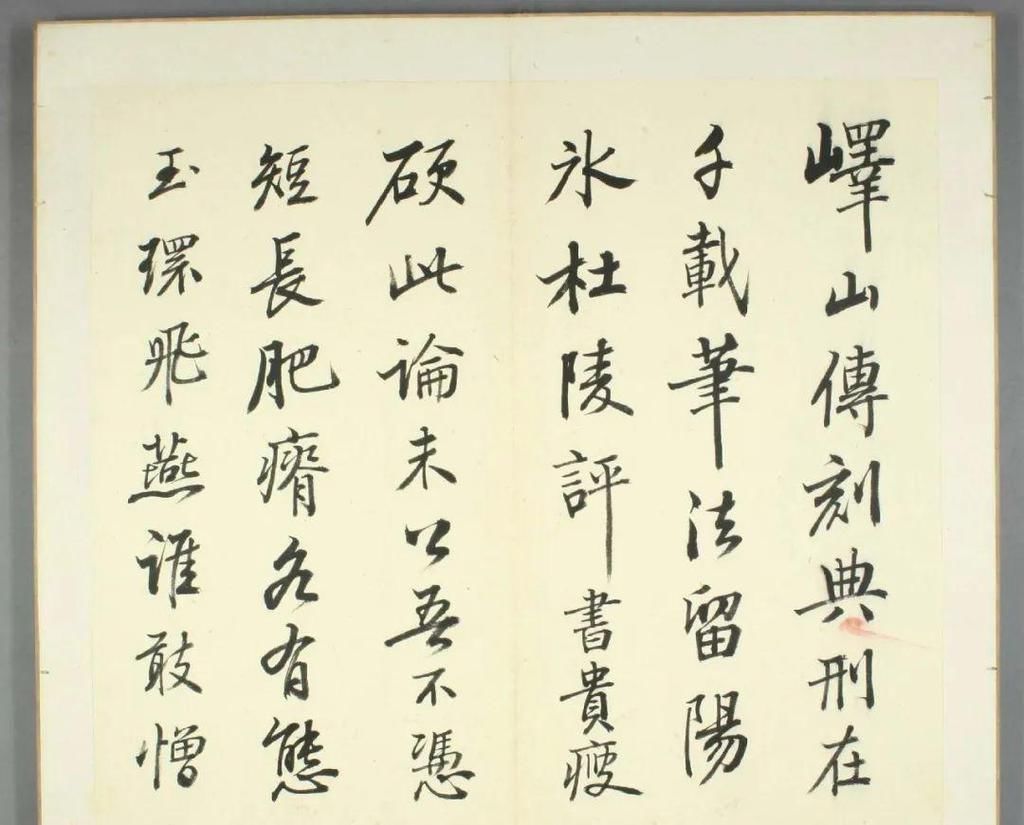 嶧山傳刻典刑在
千載筆法留陽
氷杜陵評書貴瘦
硬此論未公吾不憑
短長肥瘠各有態
玉環飛燕誰敢憎